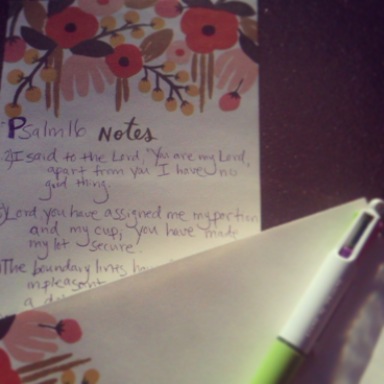 Psalm 16 Notes
2) I said to the Lord, "You are my Lord,
apart from you I have no
good thing.
Lord you have assigned me my portion
and my cup; you have made
my lot secure.
The boundary lines
in pleasant
a